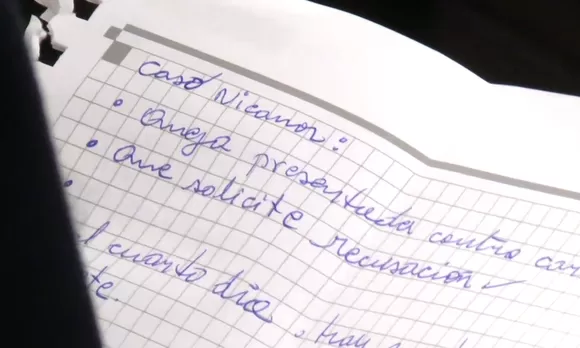 Caso Nicanor:
• Queja presentada contra car
• Que solicite recusación
•
l cuarto día, tra
te.